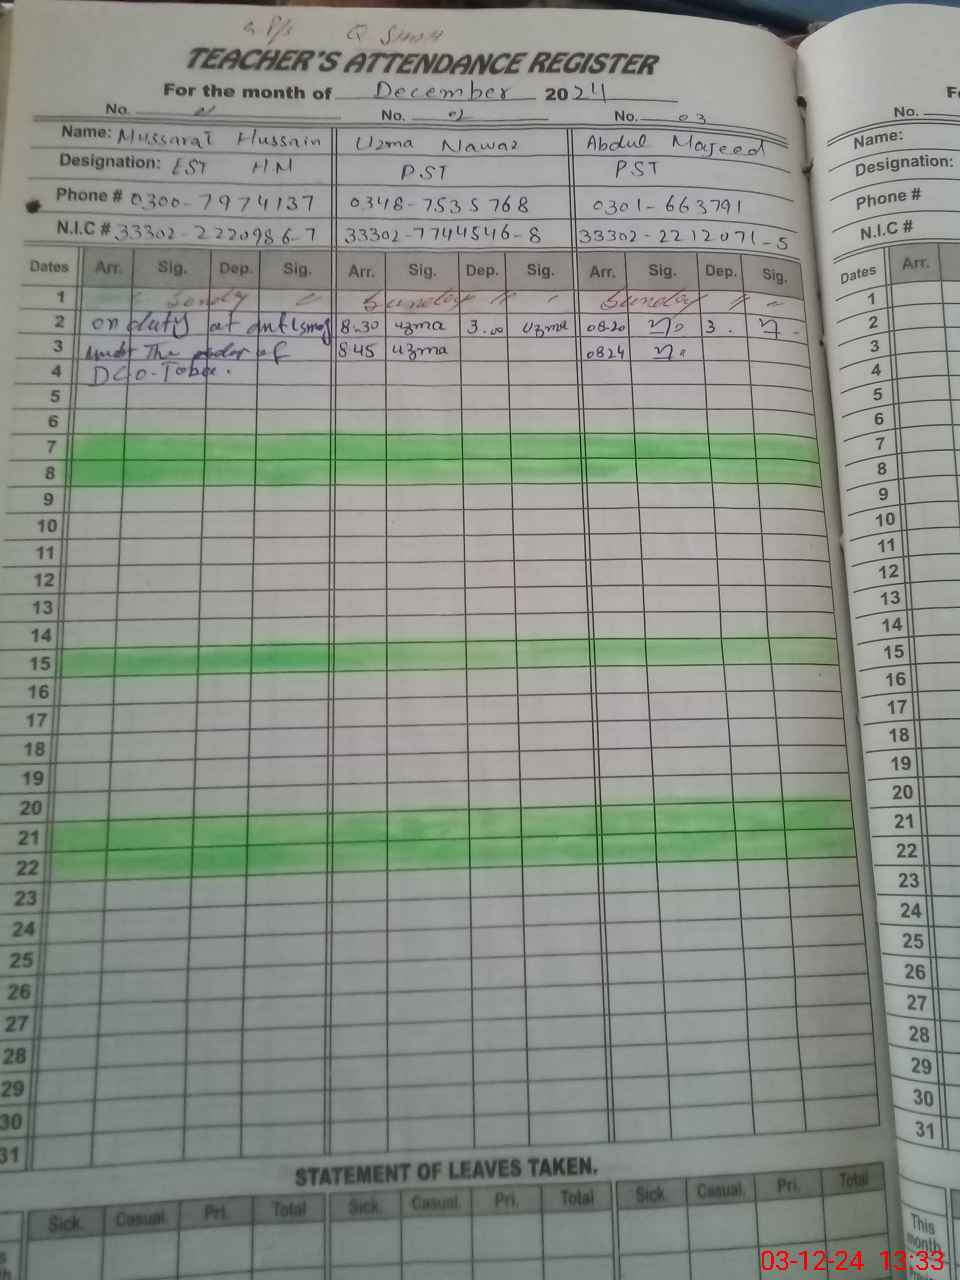 TEACHER'S ATTENDANCE REGISTER
For the month of December 2024
No. No. 02 No. 03 No.
Name: Mussarat Hussain Uzma Nawaz Abdul Majeed Name:
Designation: EST HM PST PST Designation:
Phone # 0300-7974137 0348-7535768 0301-663791 Phone #
N.I.C # 33302-2220986-7 33302-7744546-8 33302-2212071-5 N.I.C #
Dates Arr. Sig. Dep. Sig. Arr. Sig. Dep. Sig. Arr. Sig. Dep. Sig. Dates Arr.
1 Sunday Sunday Sunday 1
2 on duty at 8.30 uzma 3.00 uzma 0820 3. 2
3 under The order of 845 uzma 0824 3
4 4
5 5
6 6
7 7
8 8
9 9
10 10
11 11
12 12
13 13
14 14
15 15
16 16
17 17
18 18
19 19
20 20
21 21
22 22
23 23
24 24
25 25
26 26
27 27
28 28
29 29
30 30
31 31
STATEMENT OF LEAVES TAKEN.
Sick. Casual. Pri. Total Sick. Casual. Pri. Total Sick. Casual. Pri. Total
This
month
03-12-24 13:33